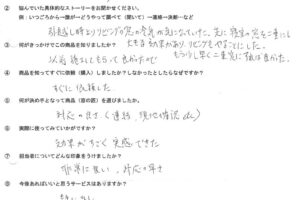 ② 悩んでいた具体的なストーリーをお聞かせください。
例：いつごろから→誰が→どうやって調べて（聞いて）→連絡→決断…など
引越し時よりリビングの窓の冷気が気になっていた。先に寝室の窓を二重にし
大きな効果があり リビングもやることにした。
③ 何がきっかけでこの商品を知りましたか？
もう少し早く二重にすれば良かった。
以前 施工してもらって良かったので
④ 商品を知ってすぐに依頼（購入）しましたか？しなかったとしたらなぜですか？
すぐに依頼した
⑤ 何が決め手となって商品（窓の匠）を選びましたか。
対応の良さ（連絡、現地確認 など）
⑥ 実際に使ってみていかがですか？
効果がすごく実感できた
⑦ 担当者についてどんな印象をうけましたか？
非常に良い、対応の早さ
⑧ 今後あればいいと思うサービスはありますか？